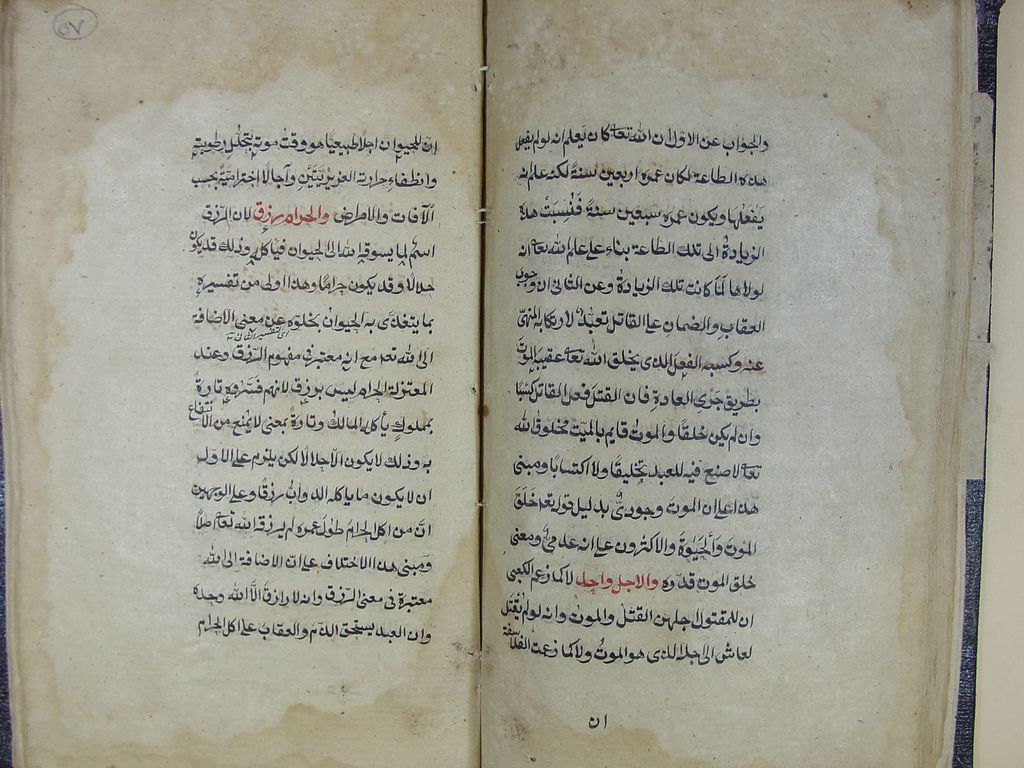 والجواب عن الاول ان الله تعالى كان يعلم انه لو لم يفعل
هذه الطاعة لكان عمره اربعين سنة لكنه علم انه
يفعلها ويكون عمره سبعين سنة فنسبت هذه
الزيادة الى تلك الطاعة بناء على علم الله تعالى انه
لولاها لما كانت تلك الزيادة وعن الثانى ان وجوب
العقاب والضمان على القاتل تعبد لارتكابه المنهى
عنه وكسبه الفعل الذى يخلق الله تعالى عقيبه الموت
بطريق جرى العادة فان القتل فعل القاتل كسبا
وان لم يكن خلقا والموت قايم بالميت مخلوق الله
تعالى لا صنع فيه للعبد تخليقا ولا اكتسابا ومبنى
هذا على ان الموت وجودى بدليل قوله تعم خلق
الموت والحيوة والاكثرون على انه عدمى ومعنى
خلق الموت قدره والاجل واحد لا كما زعم الكعبى
ان للمقتول اجلين القتل والموت وانه لو لم يقتل
لعاش الى اجله الذى هو الموت ولا كما زعمت الفلاسفة
ان
٥٧
ان للحيوان اجلا طبيعيا هو وقت موته بتحلل رطوبته
وانطفاء حرارته الغريزيتين وآجالا اخترامية بحسب
الآفات والامراض والحرام رزق لان الرزق
اسم لما يسوقه الله الى الحيوان فياكله وذلك قد يكون
حلالا وقد يكون حراما وهذا اولى من تفسيره
بما يتغذى به الحيوان لخلوه عن معنى الاضافة
الى الله تعم مع انه معتبر فى مفهوم الرزق وعند
المعتزلة الحرام ليس برزق لانهم فسروه تارة
بمملوك يأكله المالك وتارة بمعنى لا يمنع من الانتفاع
به وذلك لا يكون الا حلالا لكن يلزم على الاول
ان لا يكون ما ياكله الدواب رزقا وعلى الوجهين
ان من اكل الحرام طول عمره لم يرزقه الله تعالى اصلا
ومبنى هذا الاختلاف على ان الاضافة الى الله
معتبرة فى معنى الرزق وانه لا رازق الا الله وحده
وان العبد يستحق الذم والعقاب على اكل الحرام